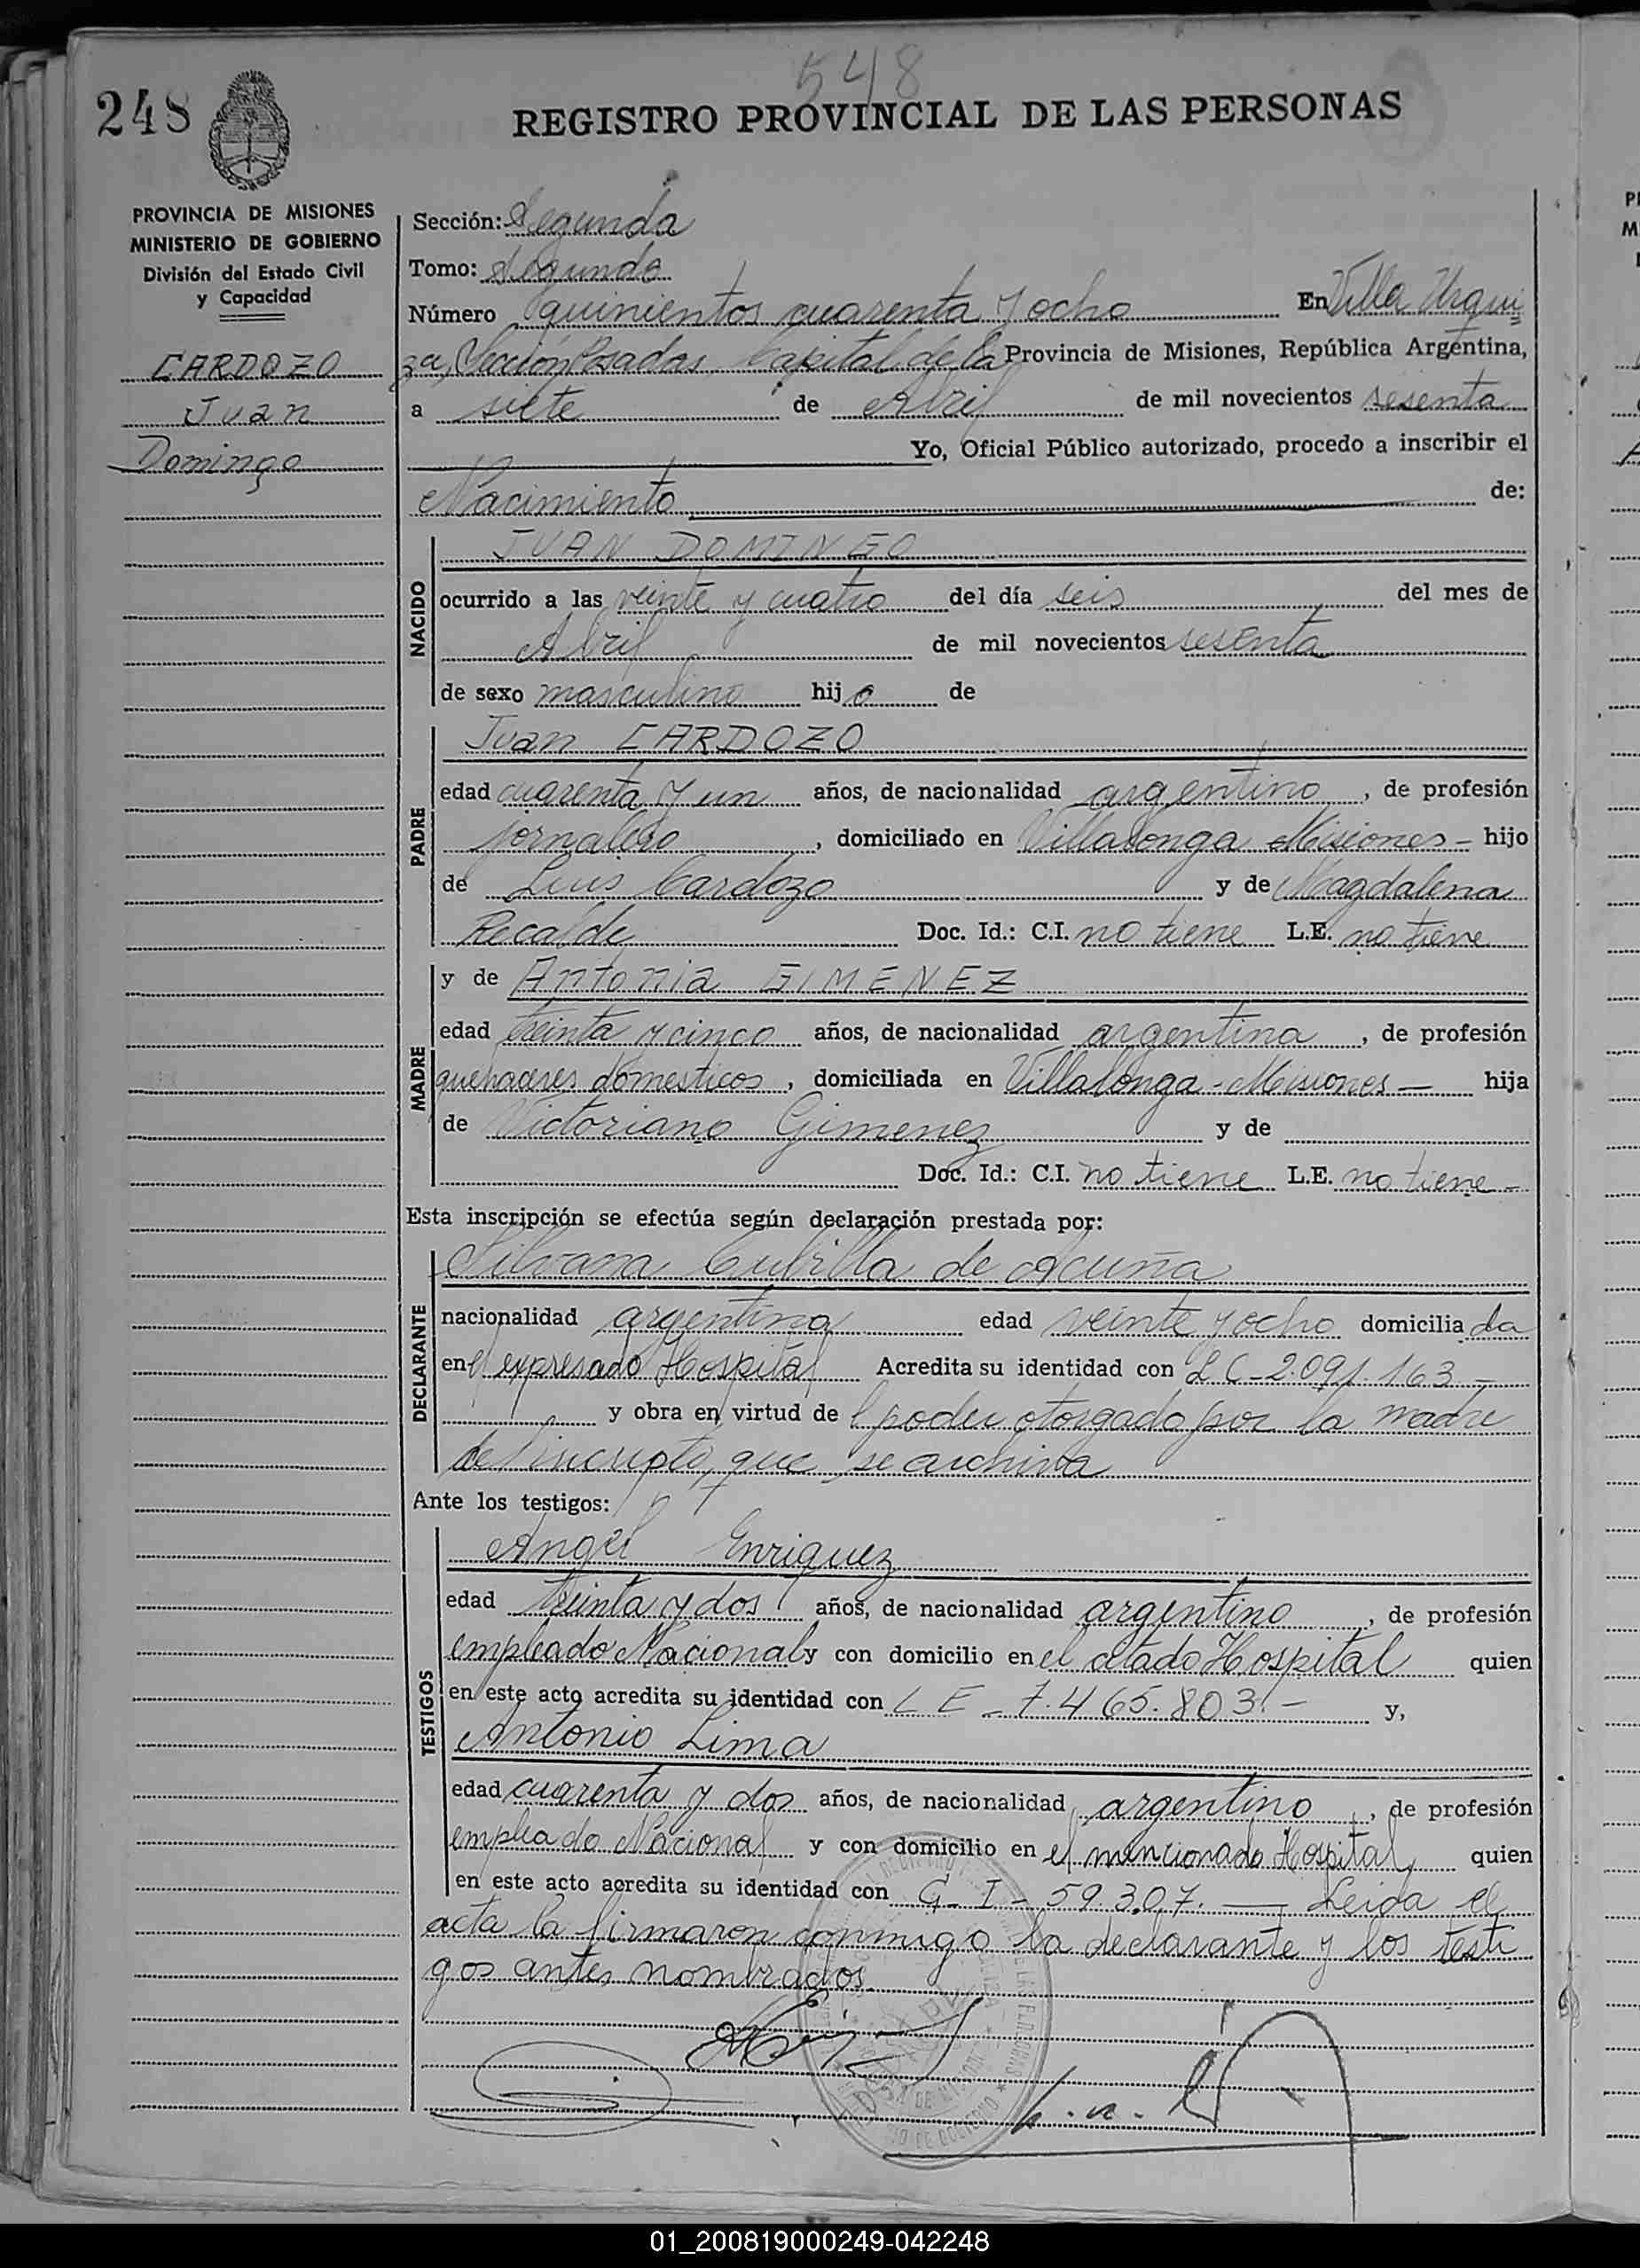 548
248
REGISTRO PROVINCIAL DE LAS PERSONAS
PROVINCIA DE MISIONES
MINISTERIO DE GOBIERNO
División del Estado Civil
y Capacidad
CARDOZO
Juan
Domingo
Sección: Segunda
Tomo: Segundo
Número quinientos cuarenta y ocho En Villa Urqui=
za, Sección Posadas Capital de la Provincia de Misiones, República Argentina,
a siete de Abril de mil novecientos sesenta
Yo, Oficial Público autorizado, procedo a inscribir el
Nacimiento de:
NACIDO
JUAN DOMINGO
ocurrido a las veinte y cuatro del día seis del mes de
Abril de mil novecientos sesenta
de sexo masculino hijo de
PADRE
Juan CARDOZO
edad cuarenta y un años, de nacionalidad argentino, de profesión
jornalero, domiciliado en Villalonga Misiones - hijo
de Luis Cardozo y de Magdalena
Recalde Doc. Id.: C.I. no tiene L.E. no tiene
MADRE
y de Antonia GIMENEZ
edad treinta y cinco años, de nacionalidad argentina, de profesión
quehaceres domesticos, domiciliada en Villalonga - Misiones — hija
de Victoriano Gimenez y de
Doc. Id.: C.I. no tiene L.E. no tiene -
Esta inscripción se efectúa según declaración prestada por:
DECLARANTE
Silvana Cubilla de Acuña
nacionalidad argentina edad veinte y ocho domiciliada
en el expresado Hospital Acredita su identidad con L C - 2.091.163 -
y obra en virtud del poder otorgado por la madre
del incripto, que se archiva
Ante los testigos:
TESTIGOS
Angel Enriquez
edad treinta y dos años, de nacionalidad argentino, de profesión
empleado Nacional y con domicilio en el citado Hospital quien
en este acto acredita su identidad con L E - 7.465.803. - y,
Antonio Lima
edad cuarenta y dos años, de nacionalidad argentino, de profesión
empleado Nacional y con domicilio en el mencionado Hospital, quien
en este acto acredita su identidad con C. I - 59.307. — Leida el
acta la firmaron conmigo la declarante y los testi
gos antes nombrados.
01_200819000249-042248